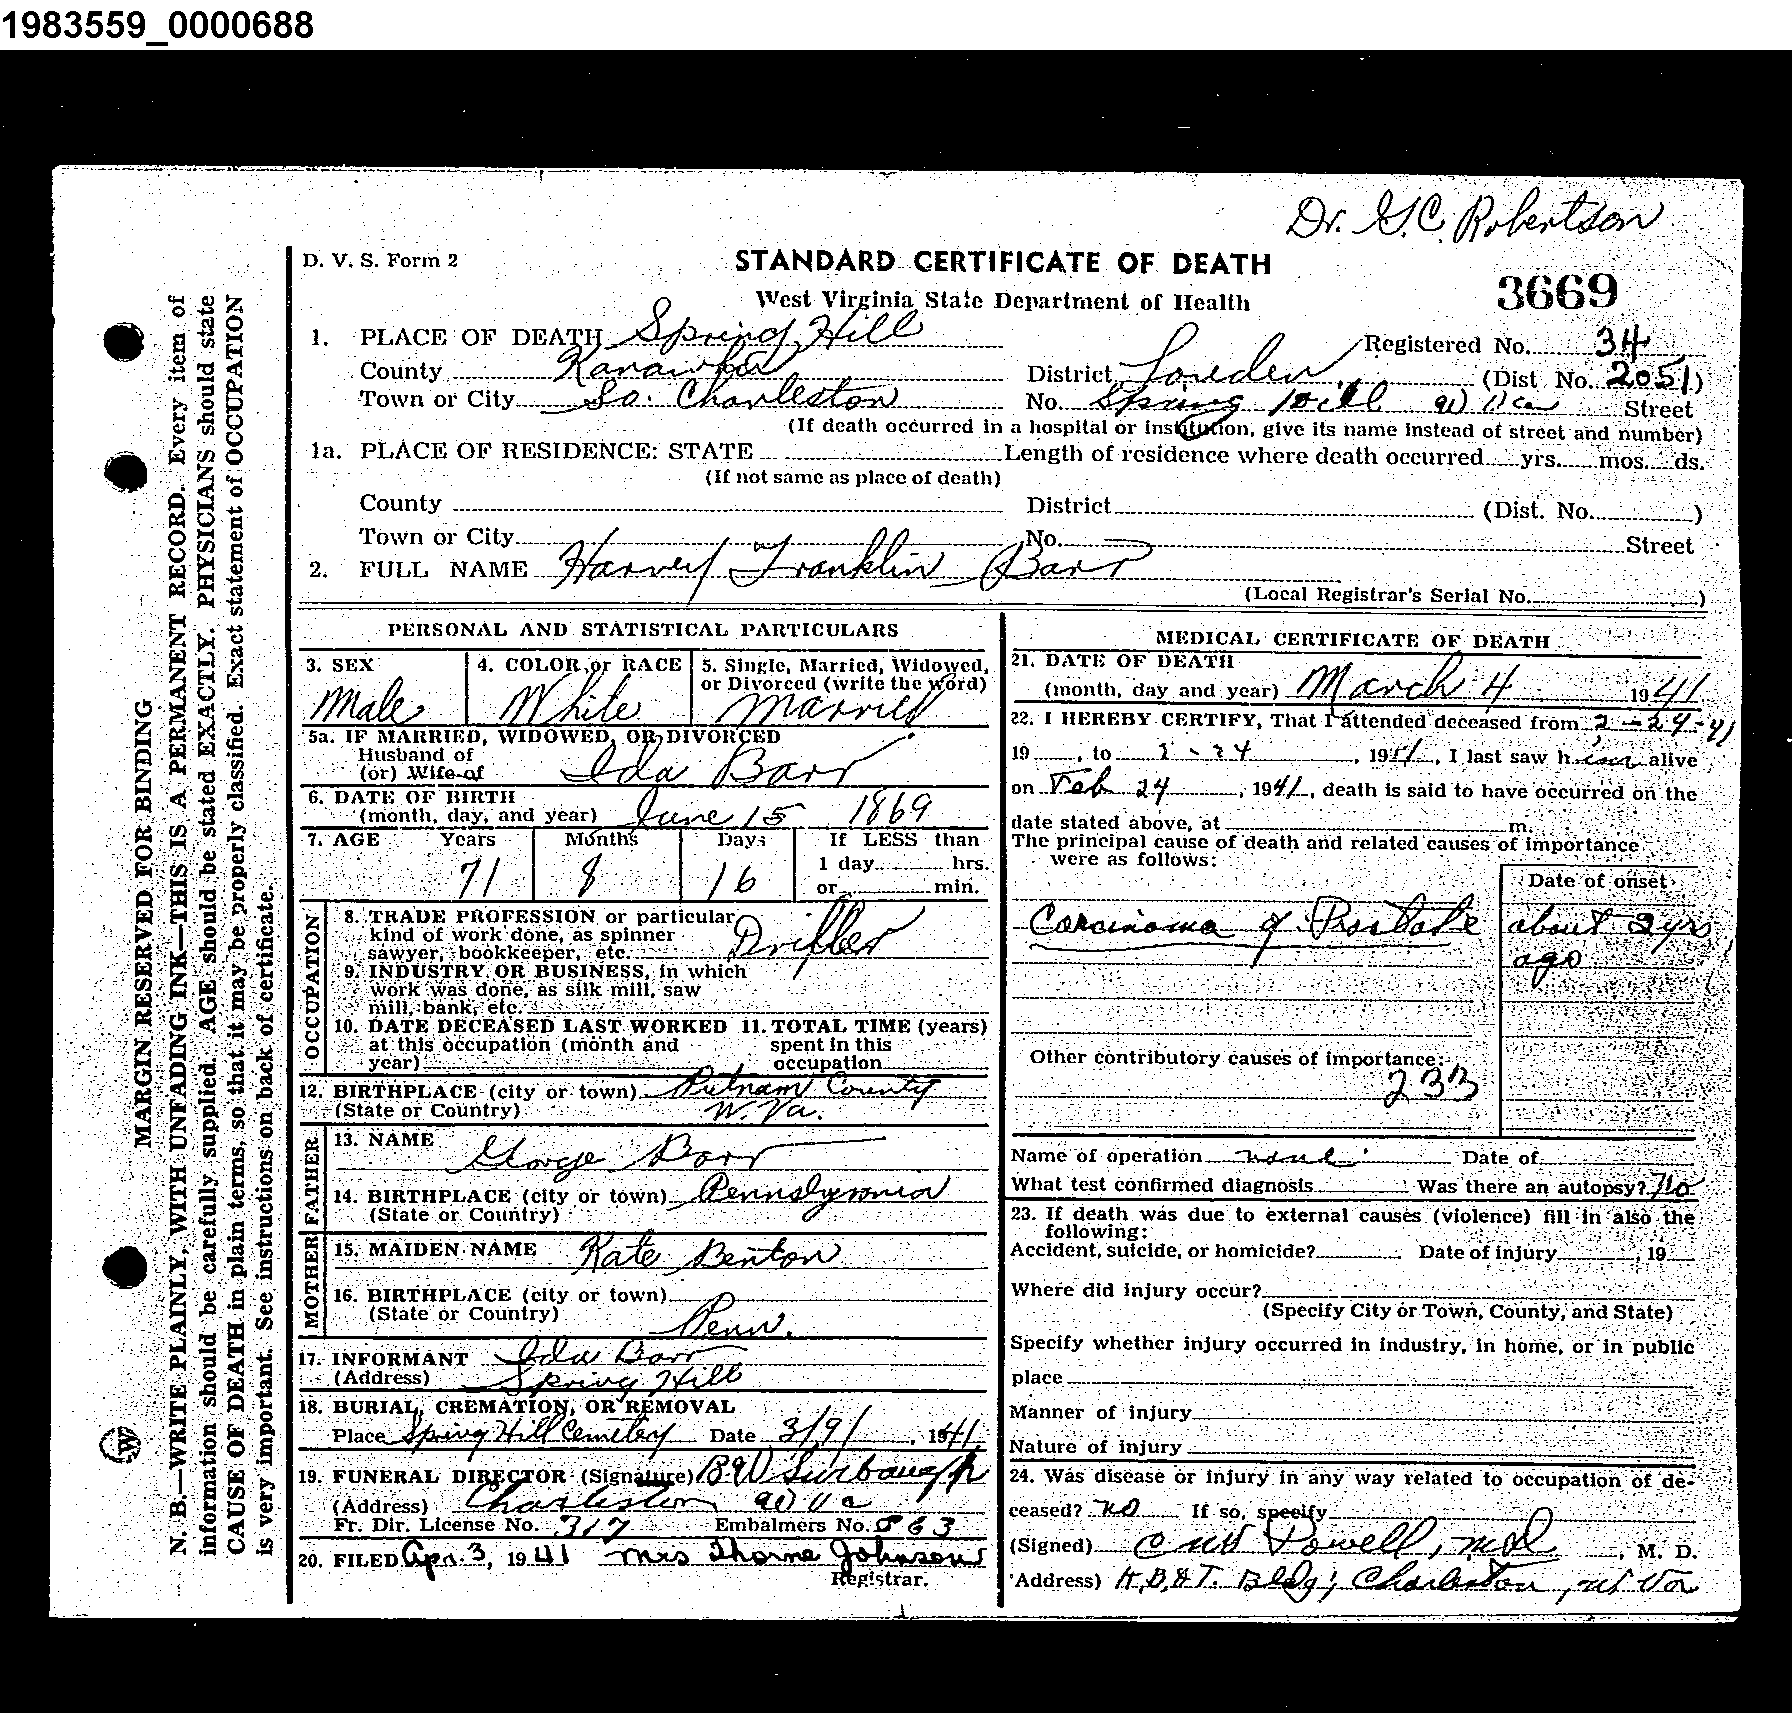 1983559_0000688
Dr. G.C. Robertson
D. V. S. Form 2
STANDARD CERTIFICATE OF DEATH
3669
West Virginia State Department of Health
1. PLACE OF DEATH Spring Hill
Registered No. 34
County Kanawha District Louden (Dist. No. 2051)
Town or City So. Charleston No. Spring Hill W Va Street
(If death occurred in a hospital or institution, give its name instead of street and number)
1a. PLACE OF RESIDENCE: STATE Length of residence where death occurred yrs. mos. ds.
(If not same as place of death)
County District (Dist. No. )
Town or City No. Street
2. FULL NAME Harvey Franklin Barr
(Local Registrar's Serial No. )
MARGIN RESERVED FOR BINDING
N. B.—WRITE PLAINLY, WITH UNFADING INK—THIS IS A PERMANENT RECORD. Every item of
information should be carefully supplied. AGE should be stated EXACTLY. PHYSICIANS should state
CAUSE OF DEATH in plain terms, so that it may be properly classified. Exact statement of OCCUPATION
is very important. See instructions on back of certificate.
PERSONAL AND STATISTICAL PARTICULARS
3. SEX 4. COLOR or RACE 5. Single, Married, Widowed,
or Divorced (write the word)
Male White Married
5a. IF MARRIED, WIDOWED, OR DIVORCED
Husband of
(or) Wife of Ida Barr
6. DATE OF BIRTH
(month, day, and year) June 15 1869
7. AGE Years Months Days If LESS than
1 day hrs.
71 8 16 or min.
OCCUPATION
8. TRADE PROFESSION or particular
kind of work done, as spinner
sawyer, bookkeeper, etc. Driller
9. INDUSTRY OR BUSINESS, in which
work was done, as silk mill, saw
mill, bank, etc.
10. DATE DECEASED LAST WORKED 11. TOTAL TIME (years)
at this occupation (month and spent in this
year) occupation
12. BIRTHPLACE (city or town) Putnam County
(State or Country) W. Va.
FATHER
13. NAME George Barr
14. BIRTHPLACE (city or town) Pennslyvania
(State or Country)
MOTHER
15. MAIDEN NAME Kate Benton
16. BIRTHPLACE (city or town)
(State or Country) Penn.
17. INFORMANT Ida Barr
(Address) Spring Hill
18. BURIAL, CREMATION, OR REMOVAL
Place Spring Hill Cemetery Date 3/9/, 1941
19. FUNERAL DIRECTOR (Signature) BW Surbaugh
(Address) Charleston W Va
Fr. Dir. License No. 317 Embalmers No. 863
20. FILED Apr. 3, 1941 Mrs Thorne Johnson
Registrar.
MEDICAL CERTIFICATE OF DEATH
21. DATE OF DEATH
(month, day and year) March 4 1941
22. I HEREBY CERTIFY, That I attended deceased from 2-24-41
19 , to 2-24, 1941, I last saw him alive
on Feb 24, 1941, death is said to have occurred on the
date stated above, at m.
The principal cause of death and related causes of importance
were as follows:
Date of onset
Carcinoma of Prostate about 2 yrs
ago
Other contributory causes of importance:
233
Name of operation none Date of
What test confirmed diagnosis Was there an autopsy? No
23. If death was due to external causes (violence) fill in also the
following:
Accident, suicide, or homicide? Date of injury , 19
Where did injury occur?
(Specify City or Town, County, and State)
Specify whether injury occurred in industry, in home, or in public
place
Manner of injury
Nature of injury
24. Was disease or injury in any way related to occupation of de-
ceased? no If so, specify
(Signed) Powell, md, M. D.
Address) K,B,&T. Bldg, Charleston, W Va